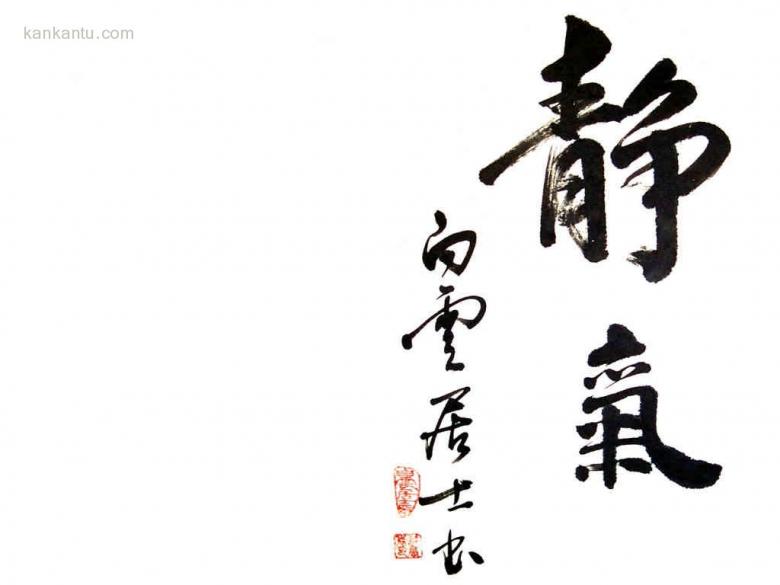 kankantu.com
靜氣
白雲居士书